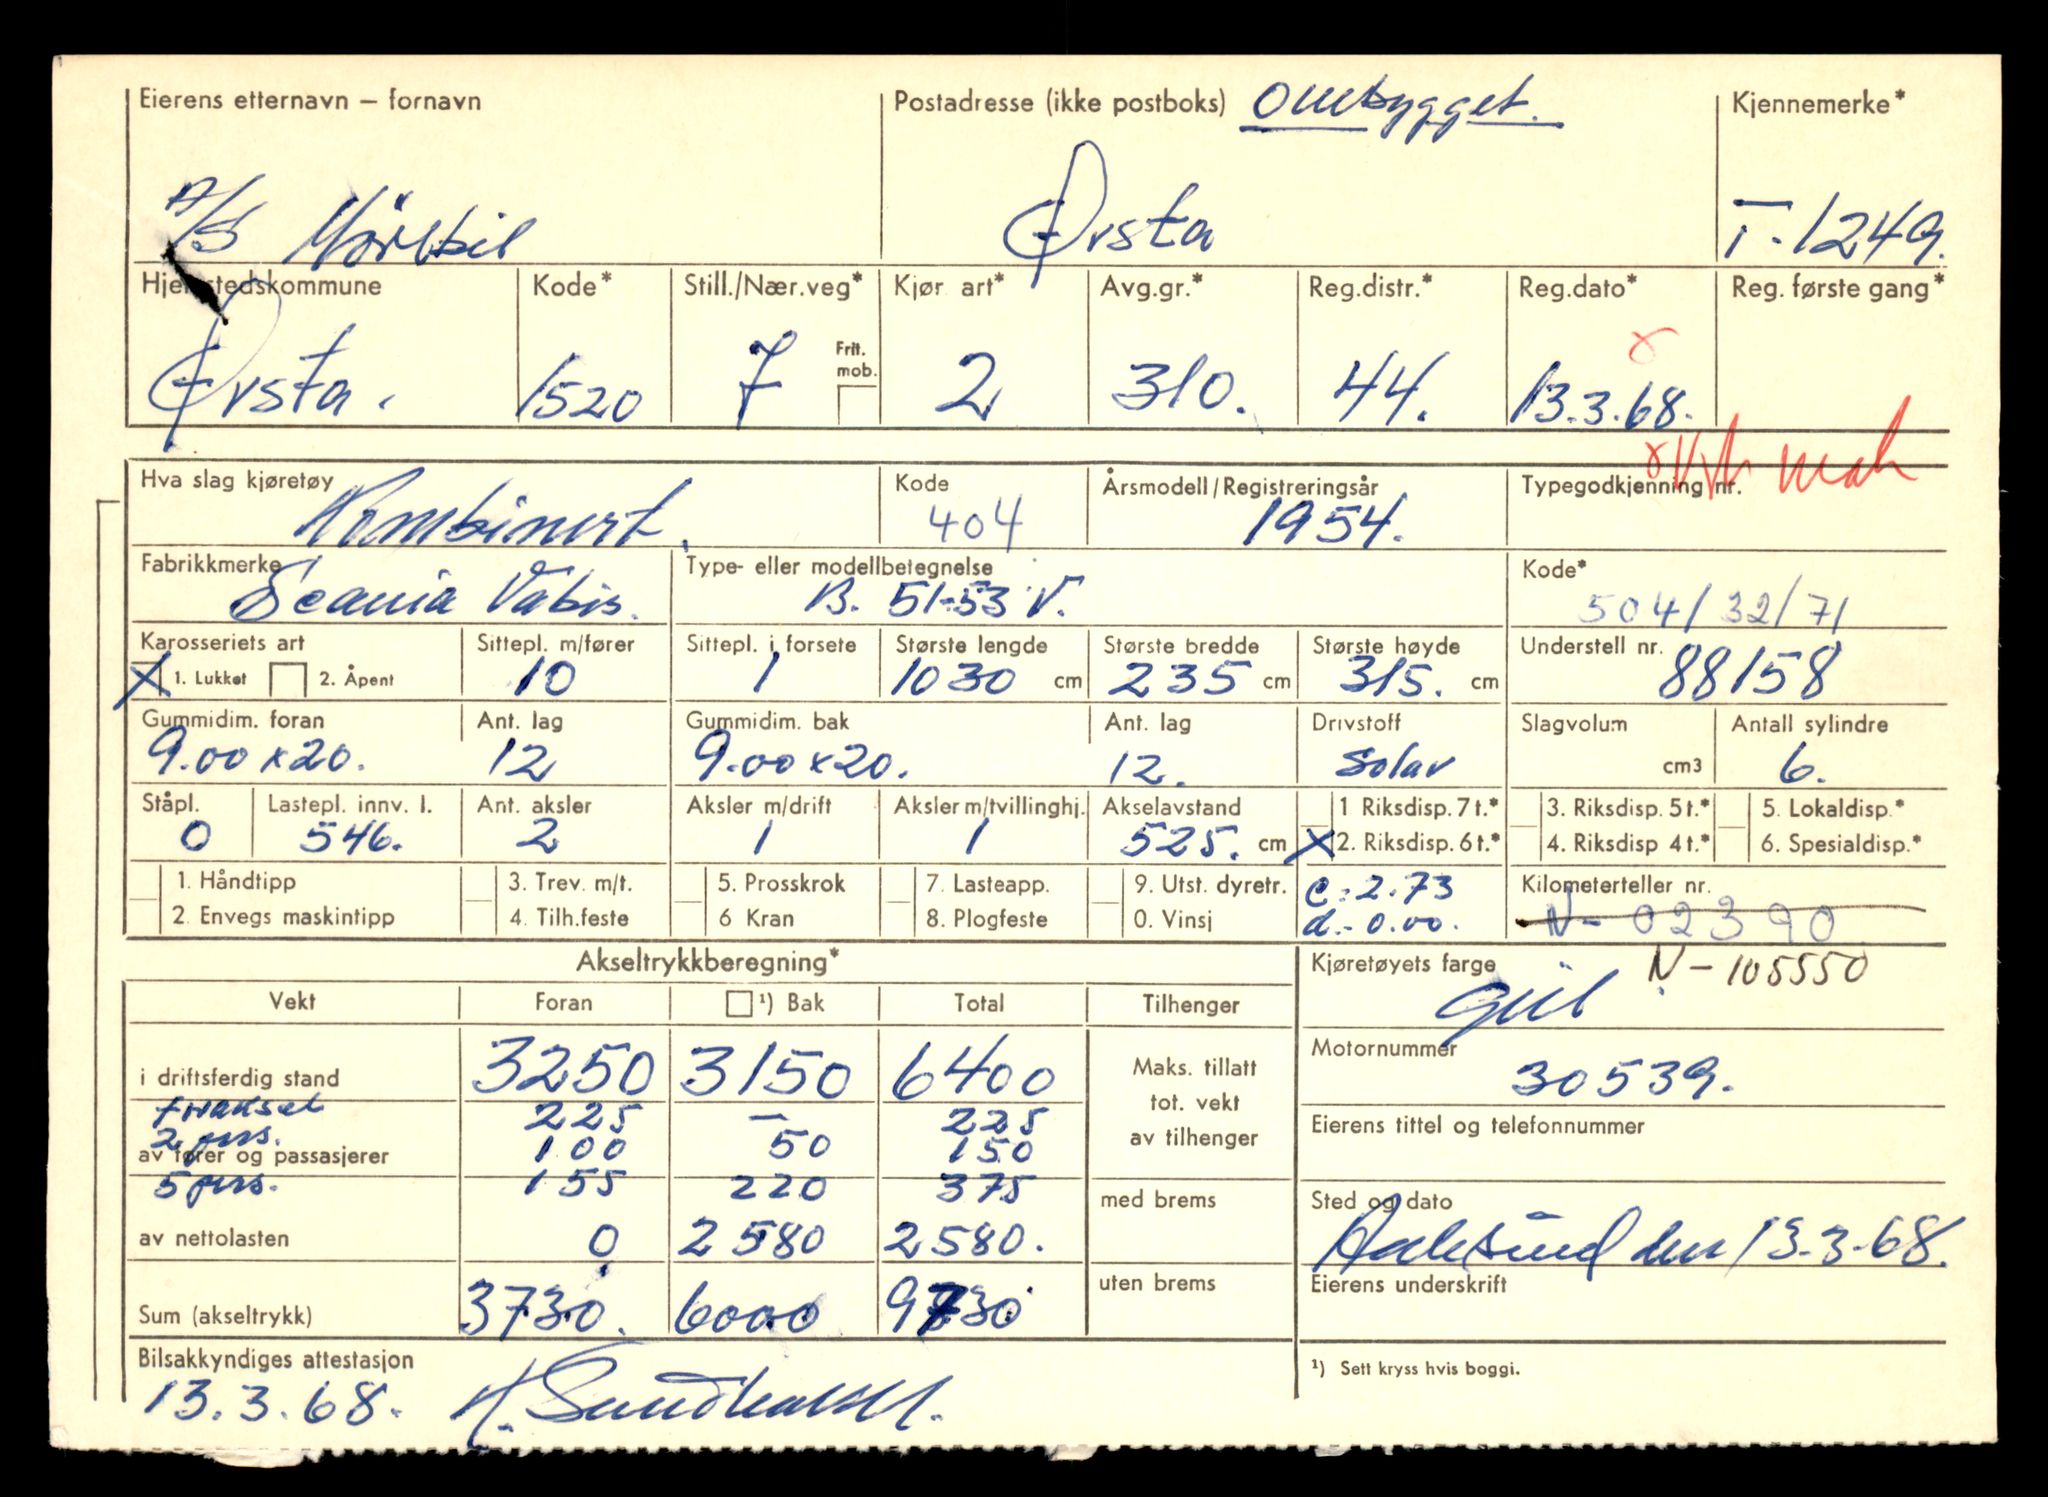 Eierens etternavn – fornavn
Postadresse (ikke postboks) Ombygget.
Kjennemerke*
A/S Mørebil
Ørsta
T-1249.
Hjemstedskommune Kode* Still./Nær.veg* Kjør. art* Avg.gr.* Reg.distr.* Reg.dato* Reg. første gang*
Frit. mob.
Ørsta. 1520 7 2 310. 44. 13.3.68.
Hva slag kjøretøy Kode Årsmodell/Registreringsår Typegodkjenning nr.
Kombinert. 404 1954.
Fabrikkmerke Type- eller modellbetegnelse Kode*
Scania Vabis. B. 51-53 V. 504/32/71
Karosseriets art Sittepl. m/fører Sittepl. i forsete Største lengde Største bredde Største høyde Understell nr.
X 1. Lukket 2. Åpent 10 1 1030 cm 235 cm 315. cm 88158
Gummidim. foran Ant. lag Gummidim. bak Ant. lag Drivstoff Slagvolum Antall sylindre
9.00 x 20. 12 9.00 x 20. 12. Solar cm3 6.
Ståpl. Lastepl. innv. l. Ant. aksler Aksler m/drift Aksler m/tvillinghj. Akselavstand 1 Riksdisp. 7 t.* 3. Riksdisp. 5 t.* 5. Lokaldisp.*
0 546. 2 1 1 525. cm X 2. Riksdisp. 6 t.* 4. Riksdisp 4 t.* 6. Spesialdisp.*
1. Håndtipp 3. Trev. m/t. 5. Prosskrok 7. Lasteapp. 9. Utst. dyretr. c.: 2.73 Kilometerteller nr.
2. Envegs maskintipp 4. Tilh.feste 6 Kran 8. Plogfeste 0. Vinsj d.- 0.00. N- 02390
Akseltrykkberegning* Kjøretøyets farge N - 105550
Vekt Foran ¹) Bak Total Tilhenger Gul
i driftsferdig stand 3250 3150 6400 Maks. tillatt tot. vekt av tilhenger
Motornummer
30539.
225 – 225
2 pers. 100 50 150
av fører og passasjerer
Eierens tittel og telefonnummer
5 pers. 155 220 375
med brems
Sted og dato
av nettolasten 0 2580 2580.
Aalesund den 13-3-68.
uten brems
Eierens underskrift
Sum (akseltrykk) 3730. 6000 9730
Bilsakkyndiges attestasjon
¹) Sett kryss hvis boggi.
13.3.68.